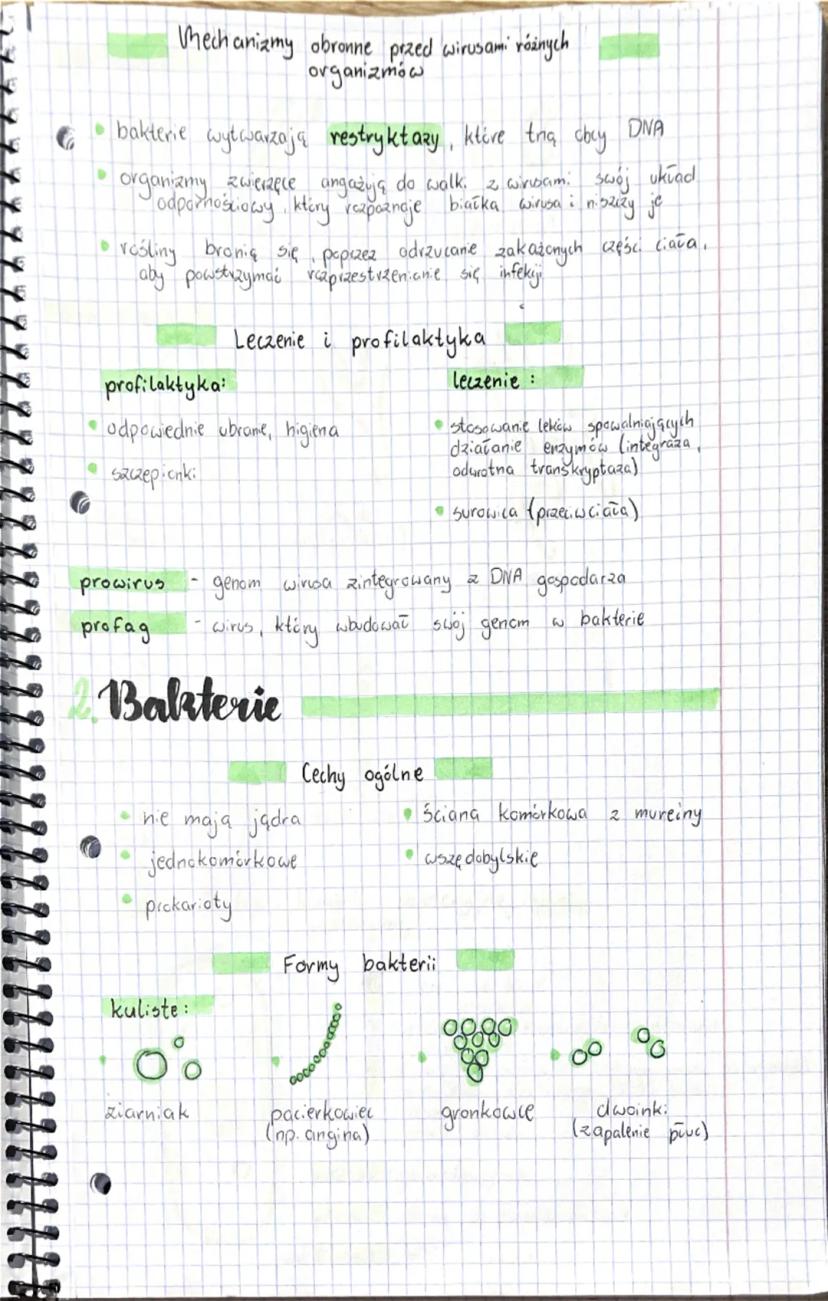 Mechanizmy obronne przed wirusami różnych
organizmów
bakterie wytwarzają restryktazy, które tną obcy DNA
organizmy zwierzęce angażują do walki z wirusami swój układ
odpornościowy, który rozpoznaje białka wirusa i niszczy je
rośliny bronią się, poprzez odrzucanie zakażonych części ciała,
aby powstrzymać rozprzestrzenianie się infekcji
Leczenie i profilaktyka
profilaktyka:
odpowiednie ubranie, higiena
szczepionki
leczenie:
stosowanie leków spowalniających
działanie enzymów (integraza,
odwrotna transkryptaza)
surowica (przeciwciała)
prowirus - genom wirusa zintegrowany z DNA gospodarza
profag - wirus, który wbudował swój genom w bakterie
2. Bakterie
Cechy ogólne
nie mają jądra
jednokomórkowe
prokarioty
ściana komórkowa z mureiny
wszędobylskie
Formy bakterii
kuliste:
ziarniak
pacierkowiec
(np. angina)
gronkowce
dwoinki
(zapalenie płuc)